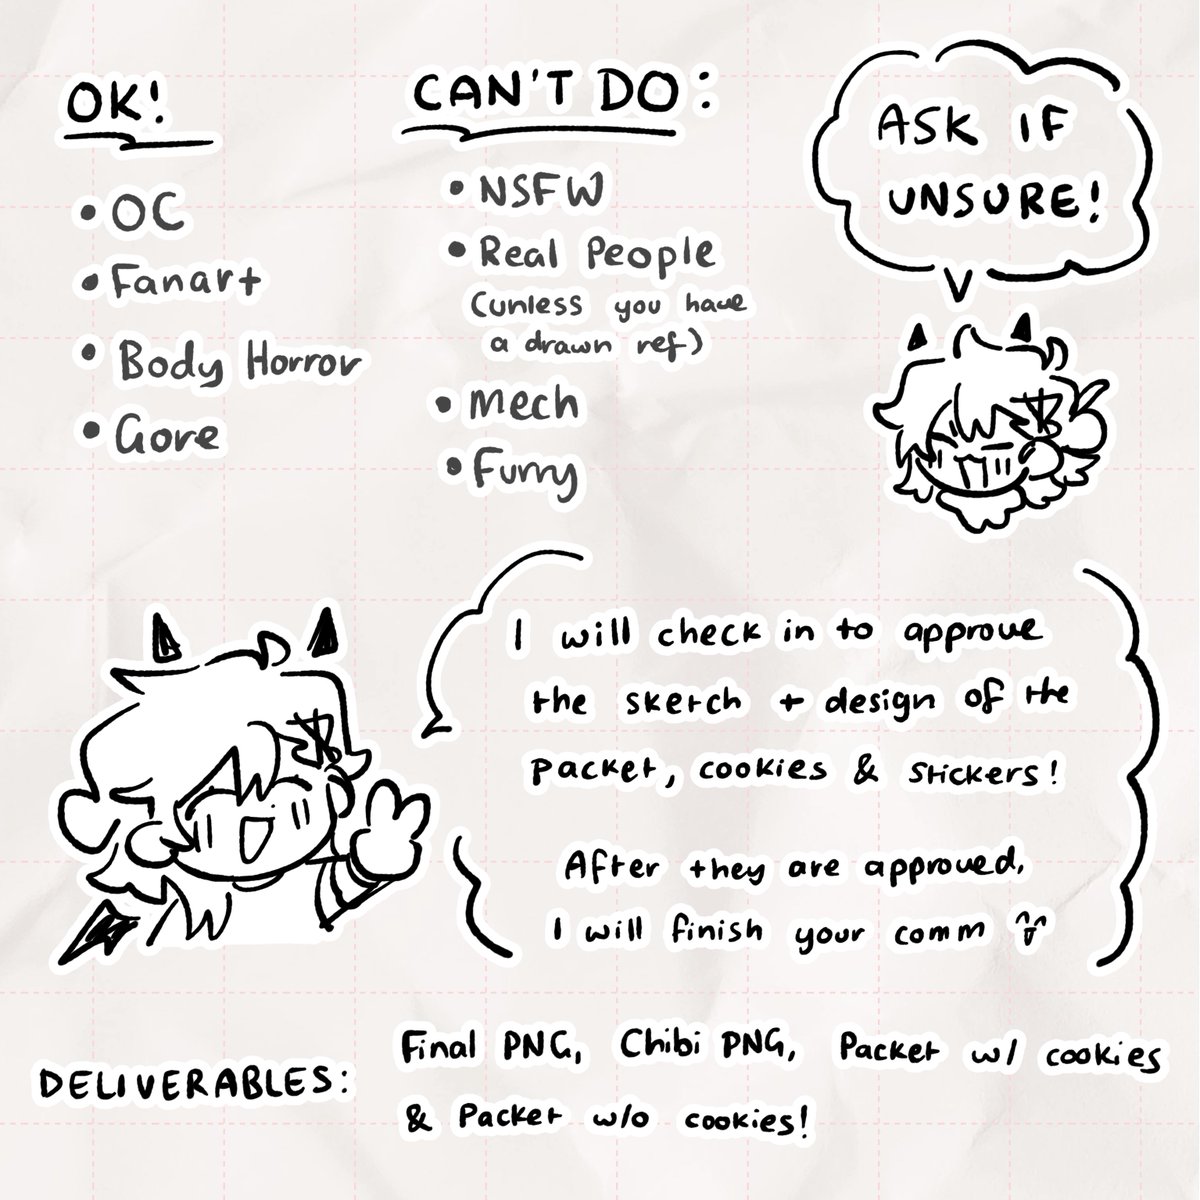 OK!
• OC
• Fanart
• Body Horror
• Gore
CAN'T DO:
• NSFW
• Real People
(unless you have
a drawn ref)
• Mech
• Furry
ASK IF
UNSURE!
I will check in to approve
the sketch + design of the
packet, cookies & stickers!
After they are approved,
I will finish your comm
DELIVERABLES:
Final PNG, Chibi PNG, Packet w/ cookies
& Packet w/o cookies!